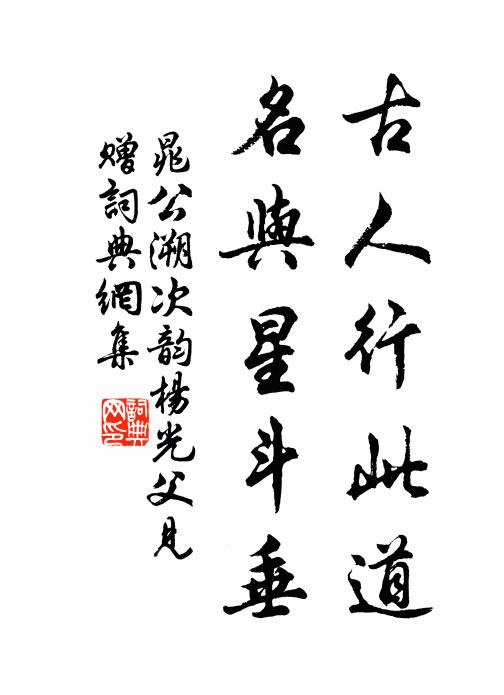 古人行此道
名與星斗垂
晁公溯次韵楊光父見
贈詞典網集
詞典網印